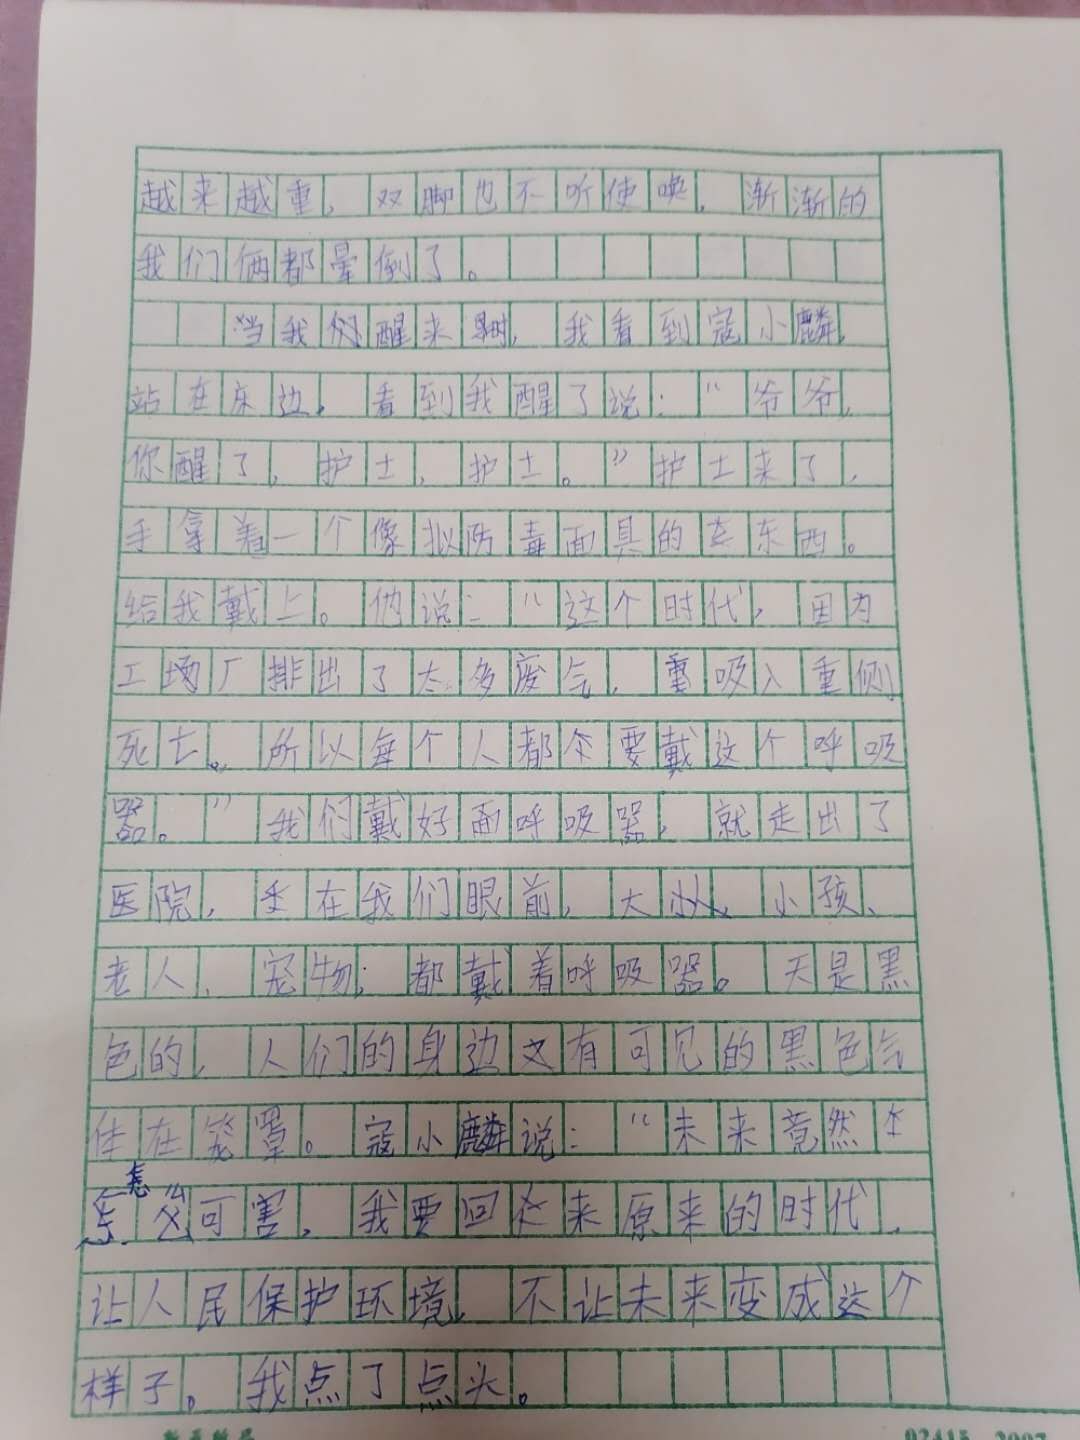 越来越重，双脚也不听使唤，渐渐的
我们俩都晕倒了。
当我们醒来时，我看到寇小麟，
站在床边，看到我醒了说：“爷爷，
你醒了，护士，护士。”护士来了，
手拿着一个像拟防毒面具的东西。
给我戴上。他说：“这个时代，因为
工场厂排出了太多废气，吸入重侧
死亡。所以每个人都要戴这个呼吸
器。”我们戴好呼吸器，就走出了
医院，在我们眼前，大人、小孩、
老人、宠物，都戴着呼吸器。天是黑
色的，人们的身边又有可见的黑色气
体在笼罩。寇小麟说：“未来竟然
怎么可害，我要回来原来的时代，
让人民保护环境，不让未来变成这个
样子。我点了点头。
02415